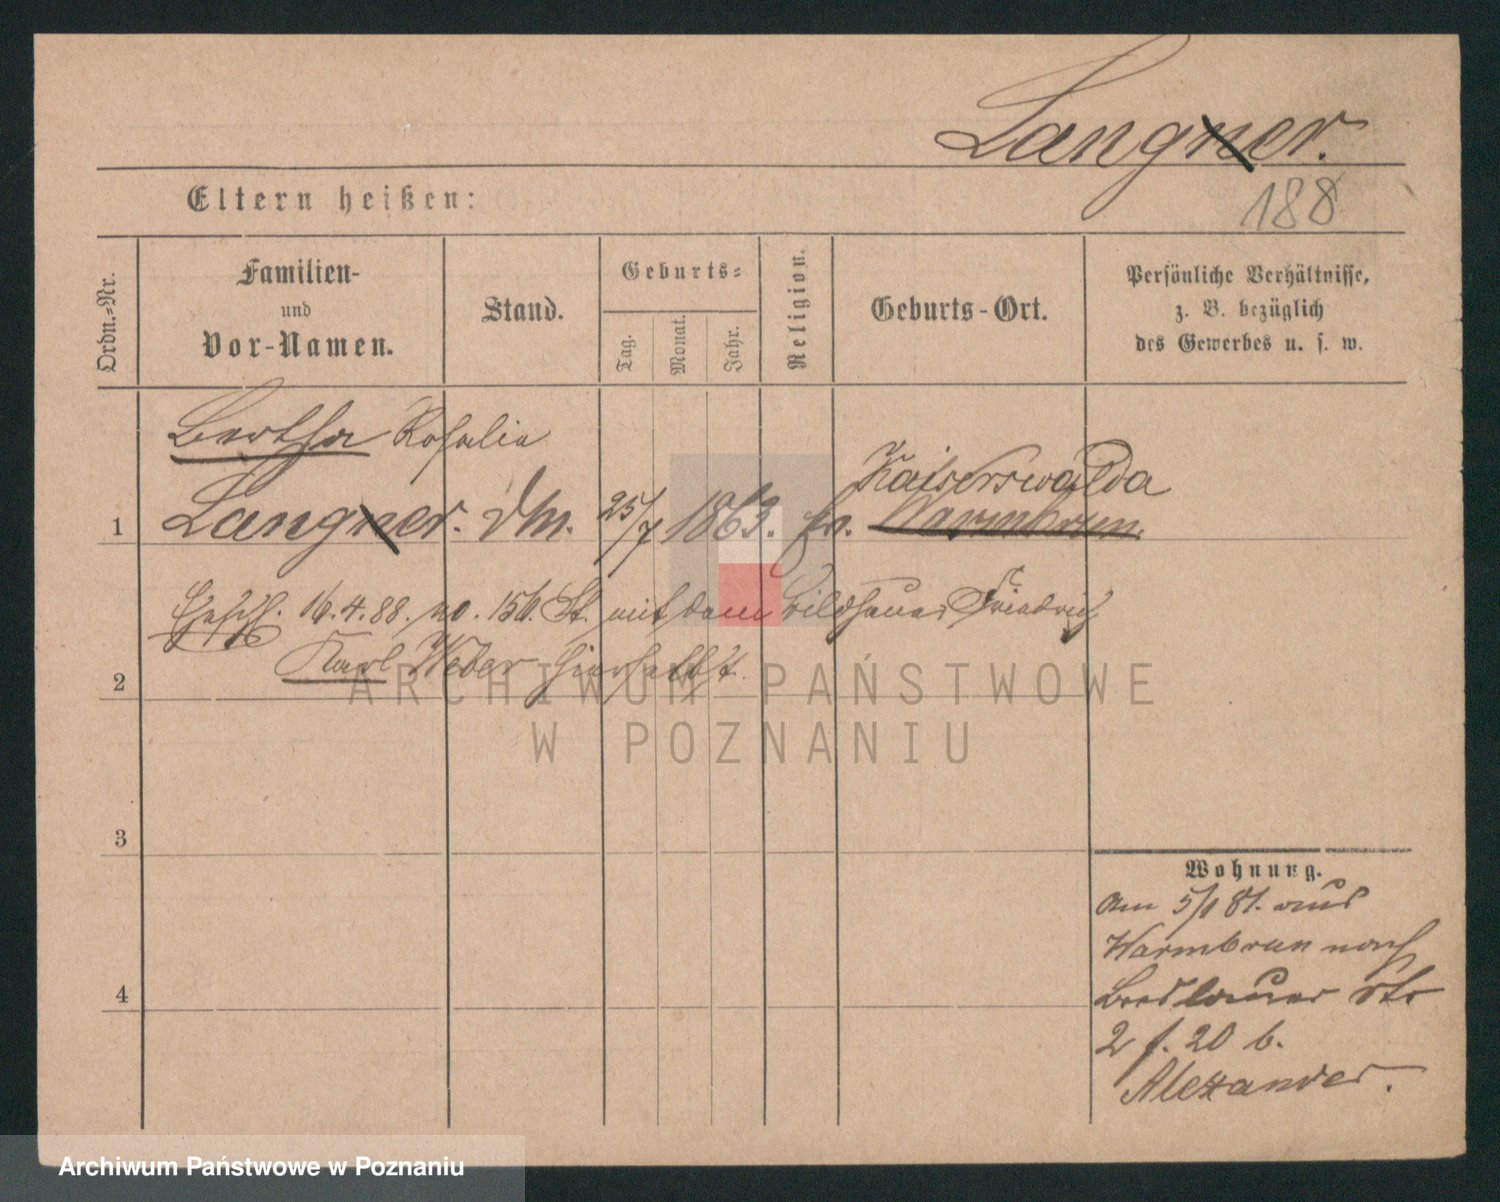 Langner.
188
Eltern heißen:
Ordn.-Nr.
Familien-
und
Vor-Namen.
Stand.
Geburts-
Tag.
Monat.
Jahr.
Religion.
Geburts-Ort.
Persönliche Verhältnisse,
z. B. bezüglich
des Gewerbes u. s. w.
Bertha Rosalia
Kaiserswalda
1
Langner. 25/7 1863. Warmbrun.
16.4.88. no. 156. St. mit dem Bildhauer Friedrich
Karl Weber hierselbst.
2
3
4
Wohnung.
Am 5/1 81. aus
Warmbrun nach
Breslauer Str
2 f. 20 b.
Alexander.
ARCHIWUM PAŃSTWOWE
W POZNANIU
Archiwum Państwowe w Poznaniu